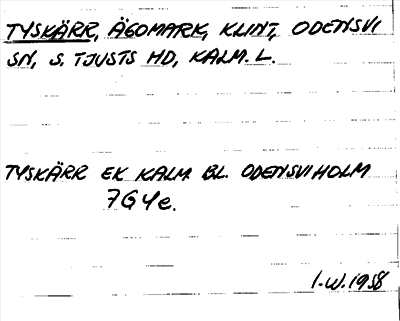 TYSKÄRR, ÄGOMARK, KLINT, ODENSVI
SN, S. TJUSTS HD, KALM. L.
TYSKÄRR EK KALM. BL. ODENSVIHOLM
7G4e.
I.W. 1958